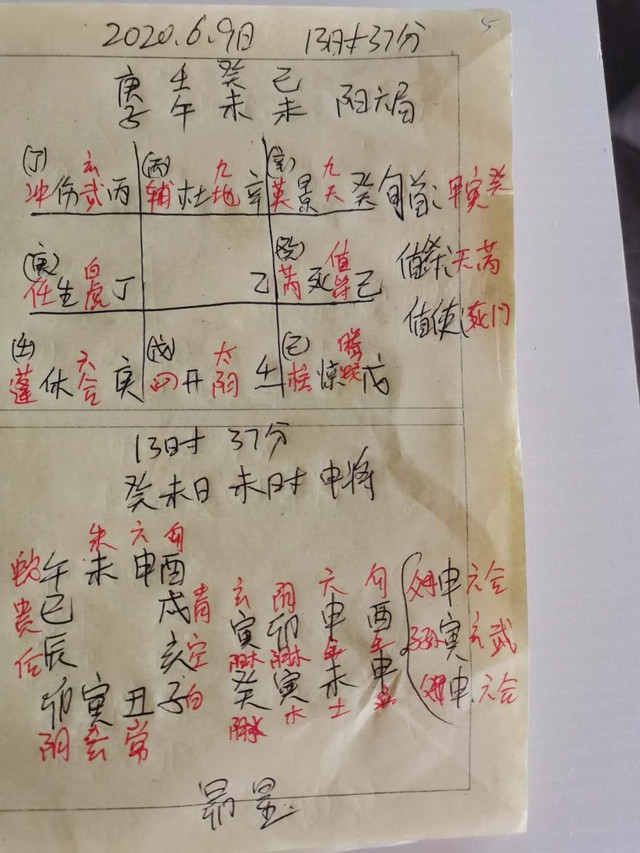 2020.6.9日 13时37分
5
庚 壬 癸 己
子 午 未 未 阳六局
(丁) 玄 (丙) 九 九
冲伤武丙 辅杜地辛 英景天癸 旬首:甲寅癸
(庚) 白 值
任生虎丁 乙 芮死符己 值符:天芮
值使:死门
(壬) 六 (戊) 太 (己) 螣
蓬休合庚 心开阴壬 柱惊蛇戊
13时 37分
癸未日 未时 申将
朱 六 勾
蛇午未申酉
贵巳 戌青
后辰 亥空
卯寅丑子白
阴玄常
玄 阴 六 勾
寅 卯 申 酉
癸 寅 未 申
木 土 金
申六合
寅玄武
申六合
昴星